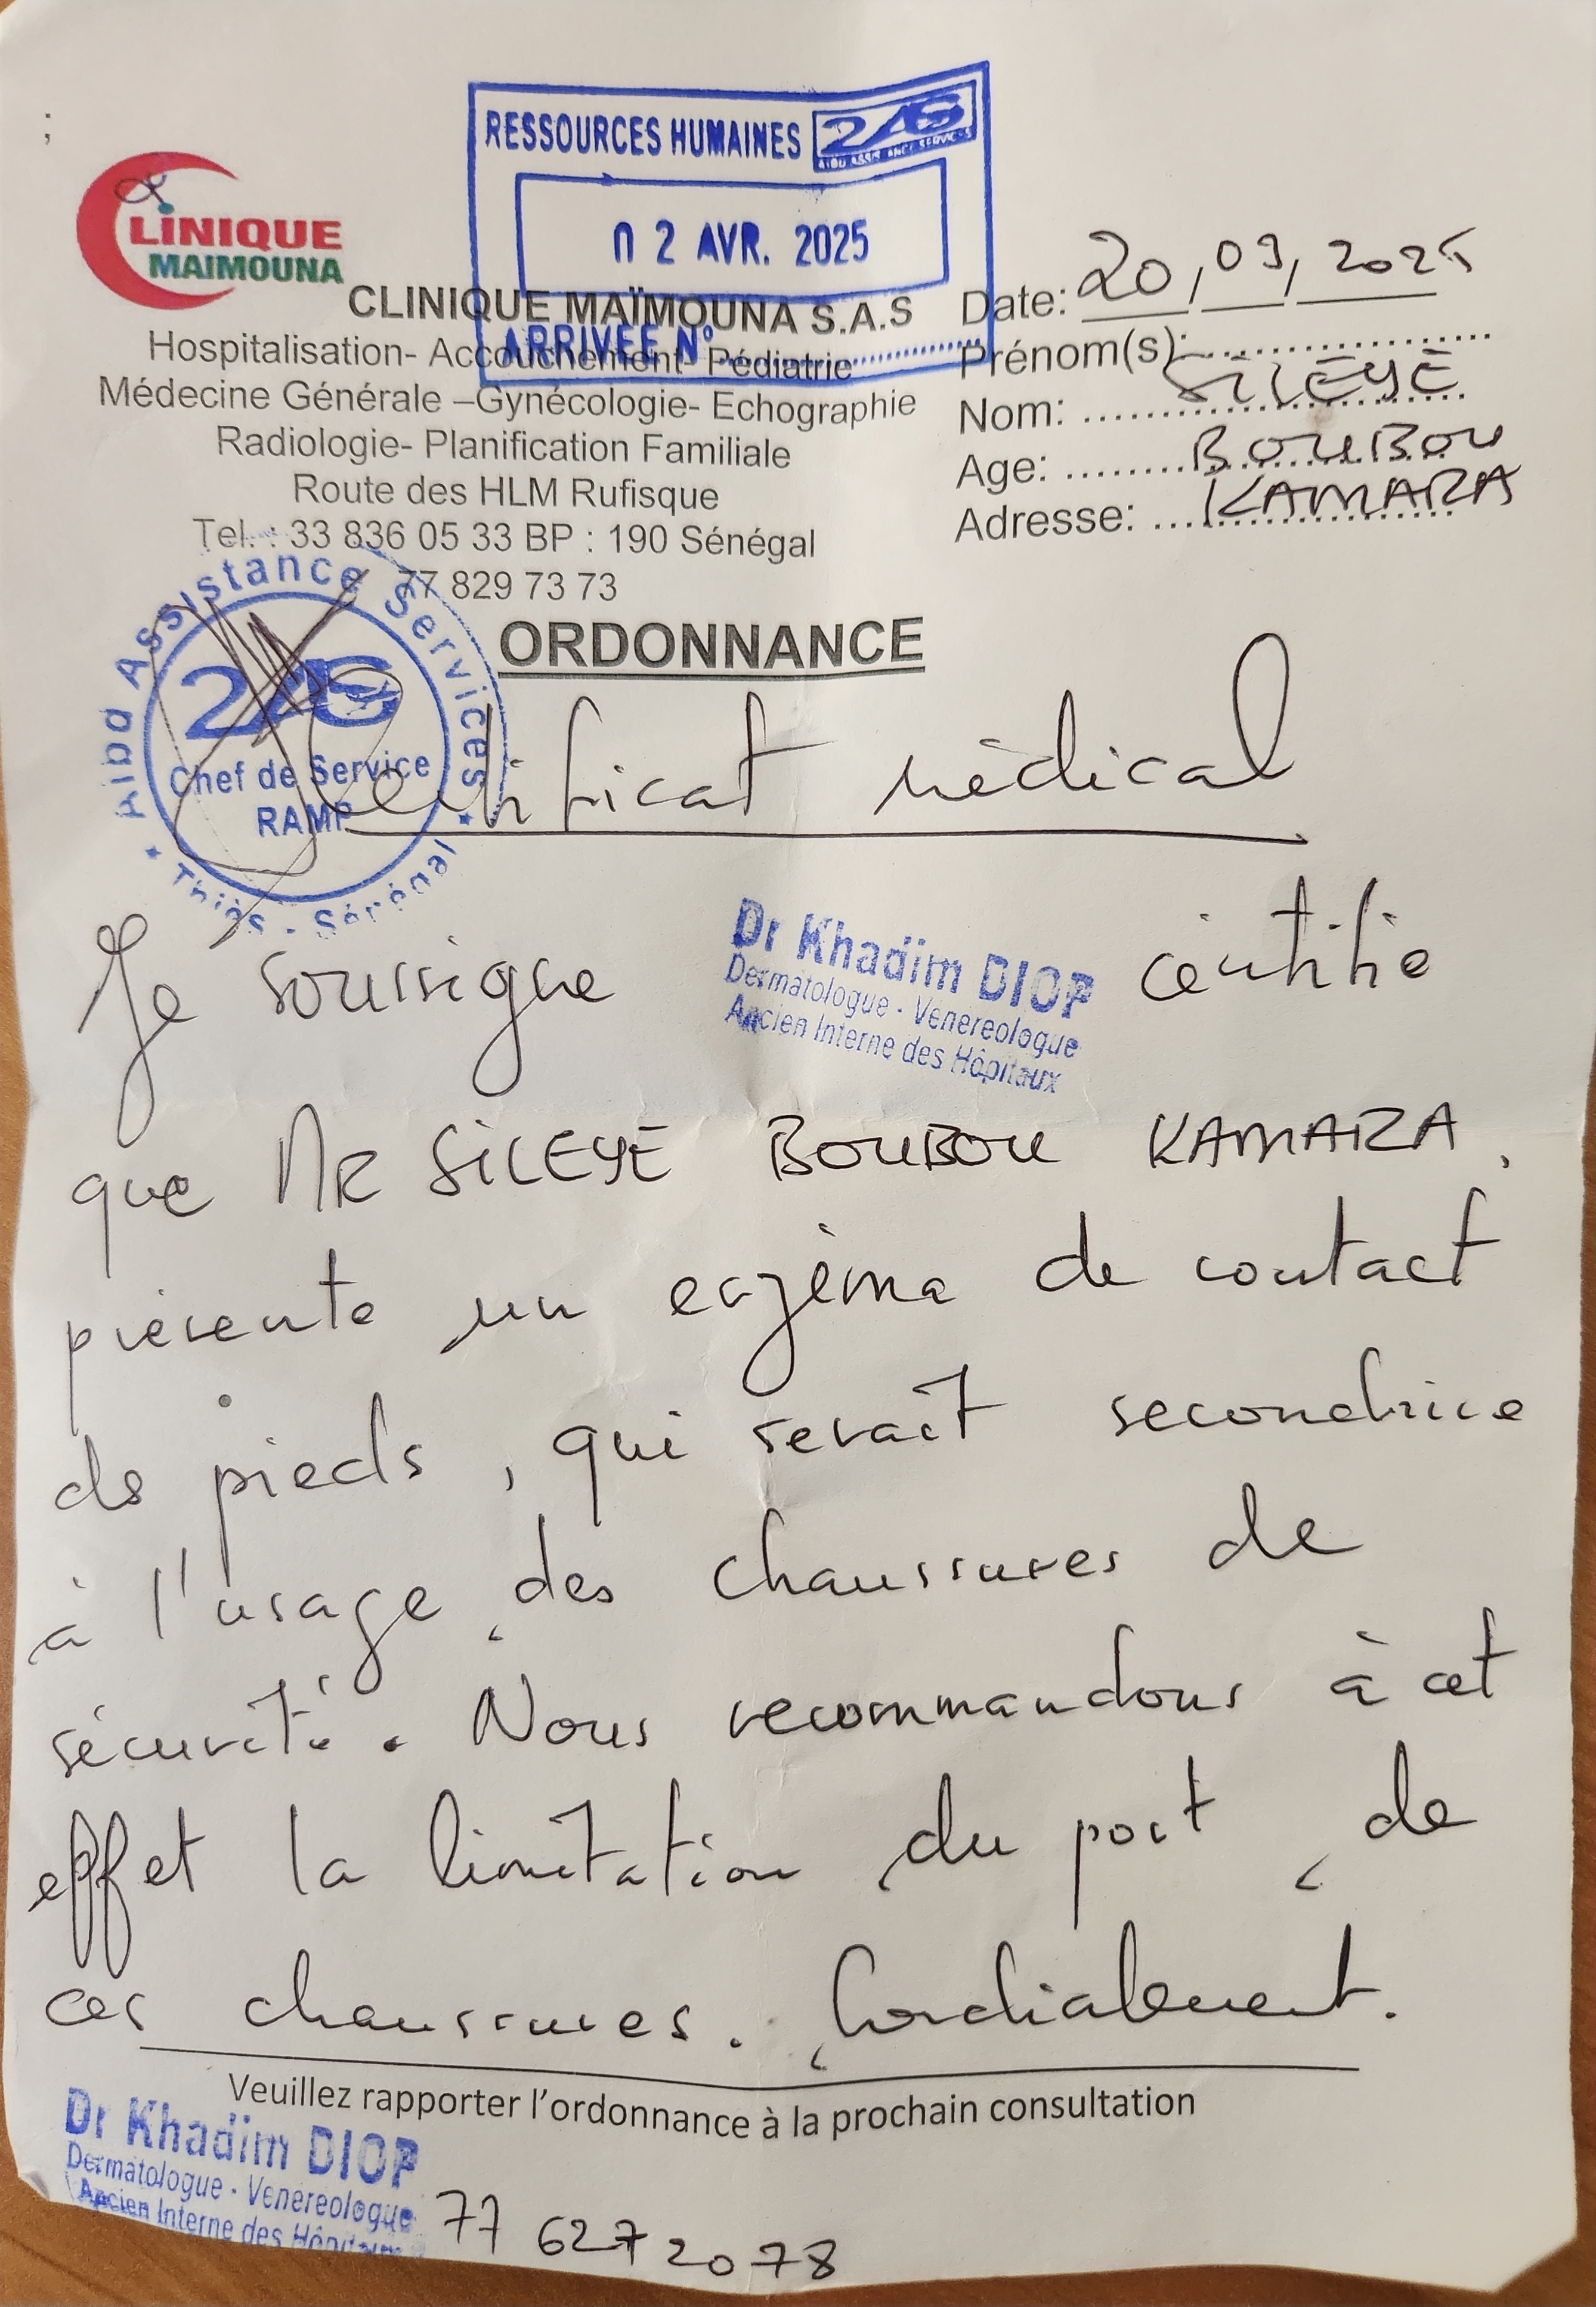 RESSOURCES HUMAINES 2AS
AIBD ASSISTANCE SERVICES
02 AVR. 2025
ARRIVÉE N°
CLINIQUE
MAIMOUNA
CLINIQUE MAÏMOUNA S.A.S
Hospitalisation- Accouchement- Pédiatrie
Médecine Générale –Gynécologie- Echographie
Radiologie- Planification Familiale
Route des HLM Rufisque
Tel. : 33 836 05 33 BP : 190 Sénégal
77 829 73 73
Date: 20/03/2025
Prénom(s):
Nom: SILEYE
Age: BOUBOU
Adresse: KAMARA
ORDONNANCE
Aibd Assistance Services
2AS
Chef de Service
RAMP
Thiès - Sénégal
Certificat médical
Je soussigné Dr Khadim DIOP certifie
Dermatologue - Venereologue
Ancien Interne des Hôpitaux
que MR SILEYE BOUBOU KAMARA,
présente un eczéma de contact
de pieds, qui serait secondaire
à l'usage des chaussures de
sécurité. Nous recommandons à cet
effet la limitation du port de
ces chaussures. Cordialement.
Veuillez rapporter l'ordonnance à la prochain consultation
Dr Khadim DIOP
Dermatologue - Venereologue
Ancien Interne des Hôpitaux
77 627 2078